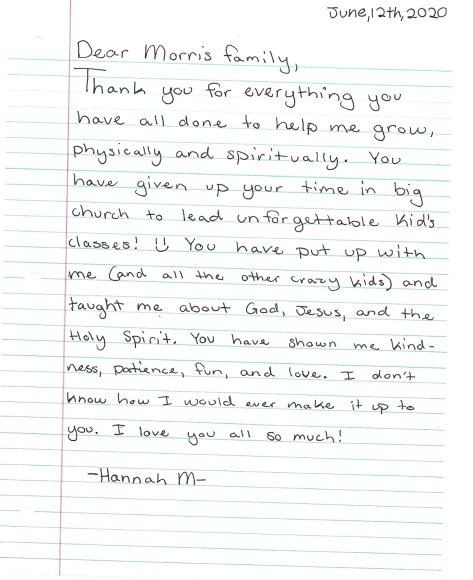 June,12th,2020
Dear Morris family,
Thank you for everything you
have all done to help me grow,
physically and spiritually. You
have given up your time in big
church to lead unforgettable Kid's
classes! Ü You have put up with
me (and all the other crazy kids) and
taught me about God, Jesus, and the
Holy Spirit. You have shown me kind-
ness, patience, fun, and love. I don't
know how I would ever make it up to
you. I love you all so much!
-Hannah M-